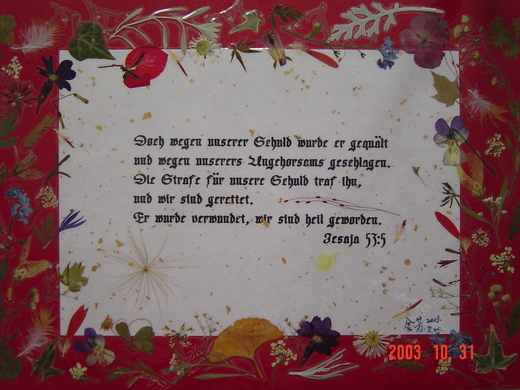 Doch wegen unserer Schuld wurde er gequält
und wegen unseres Ungehorsams geschlagen.
Die Strafe für unsere Schuld traf ihn,
und wir sind gerettet.
Er wurde verwundet, wir sind heil geworden.
Jesaja 53:5
2003.
2003 10 31